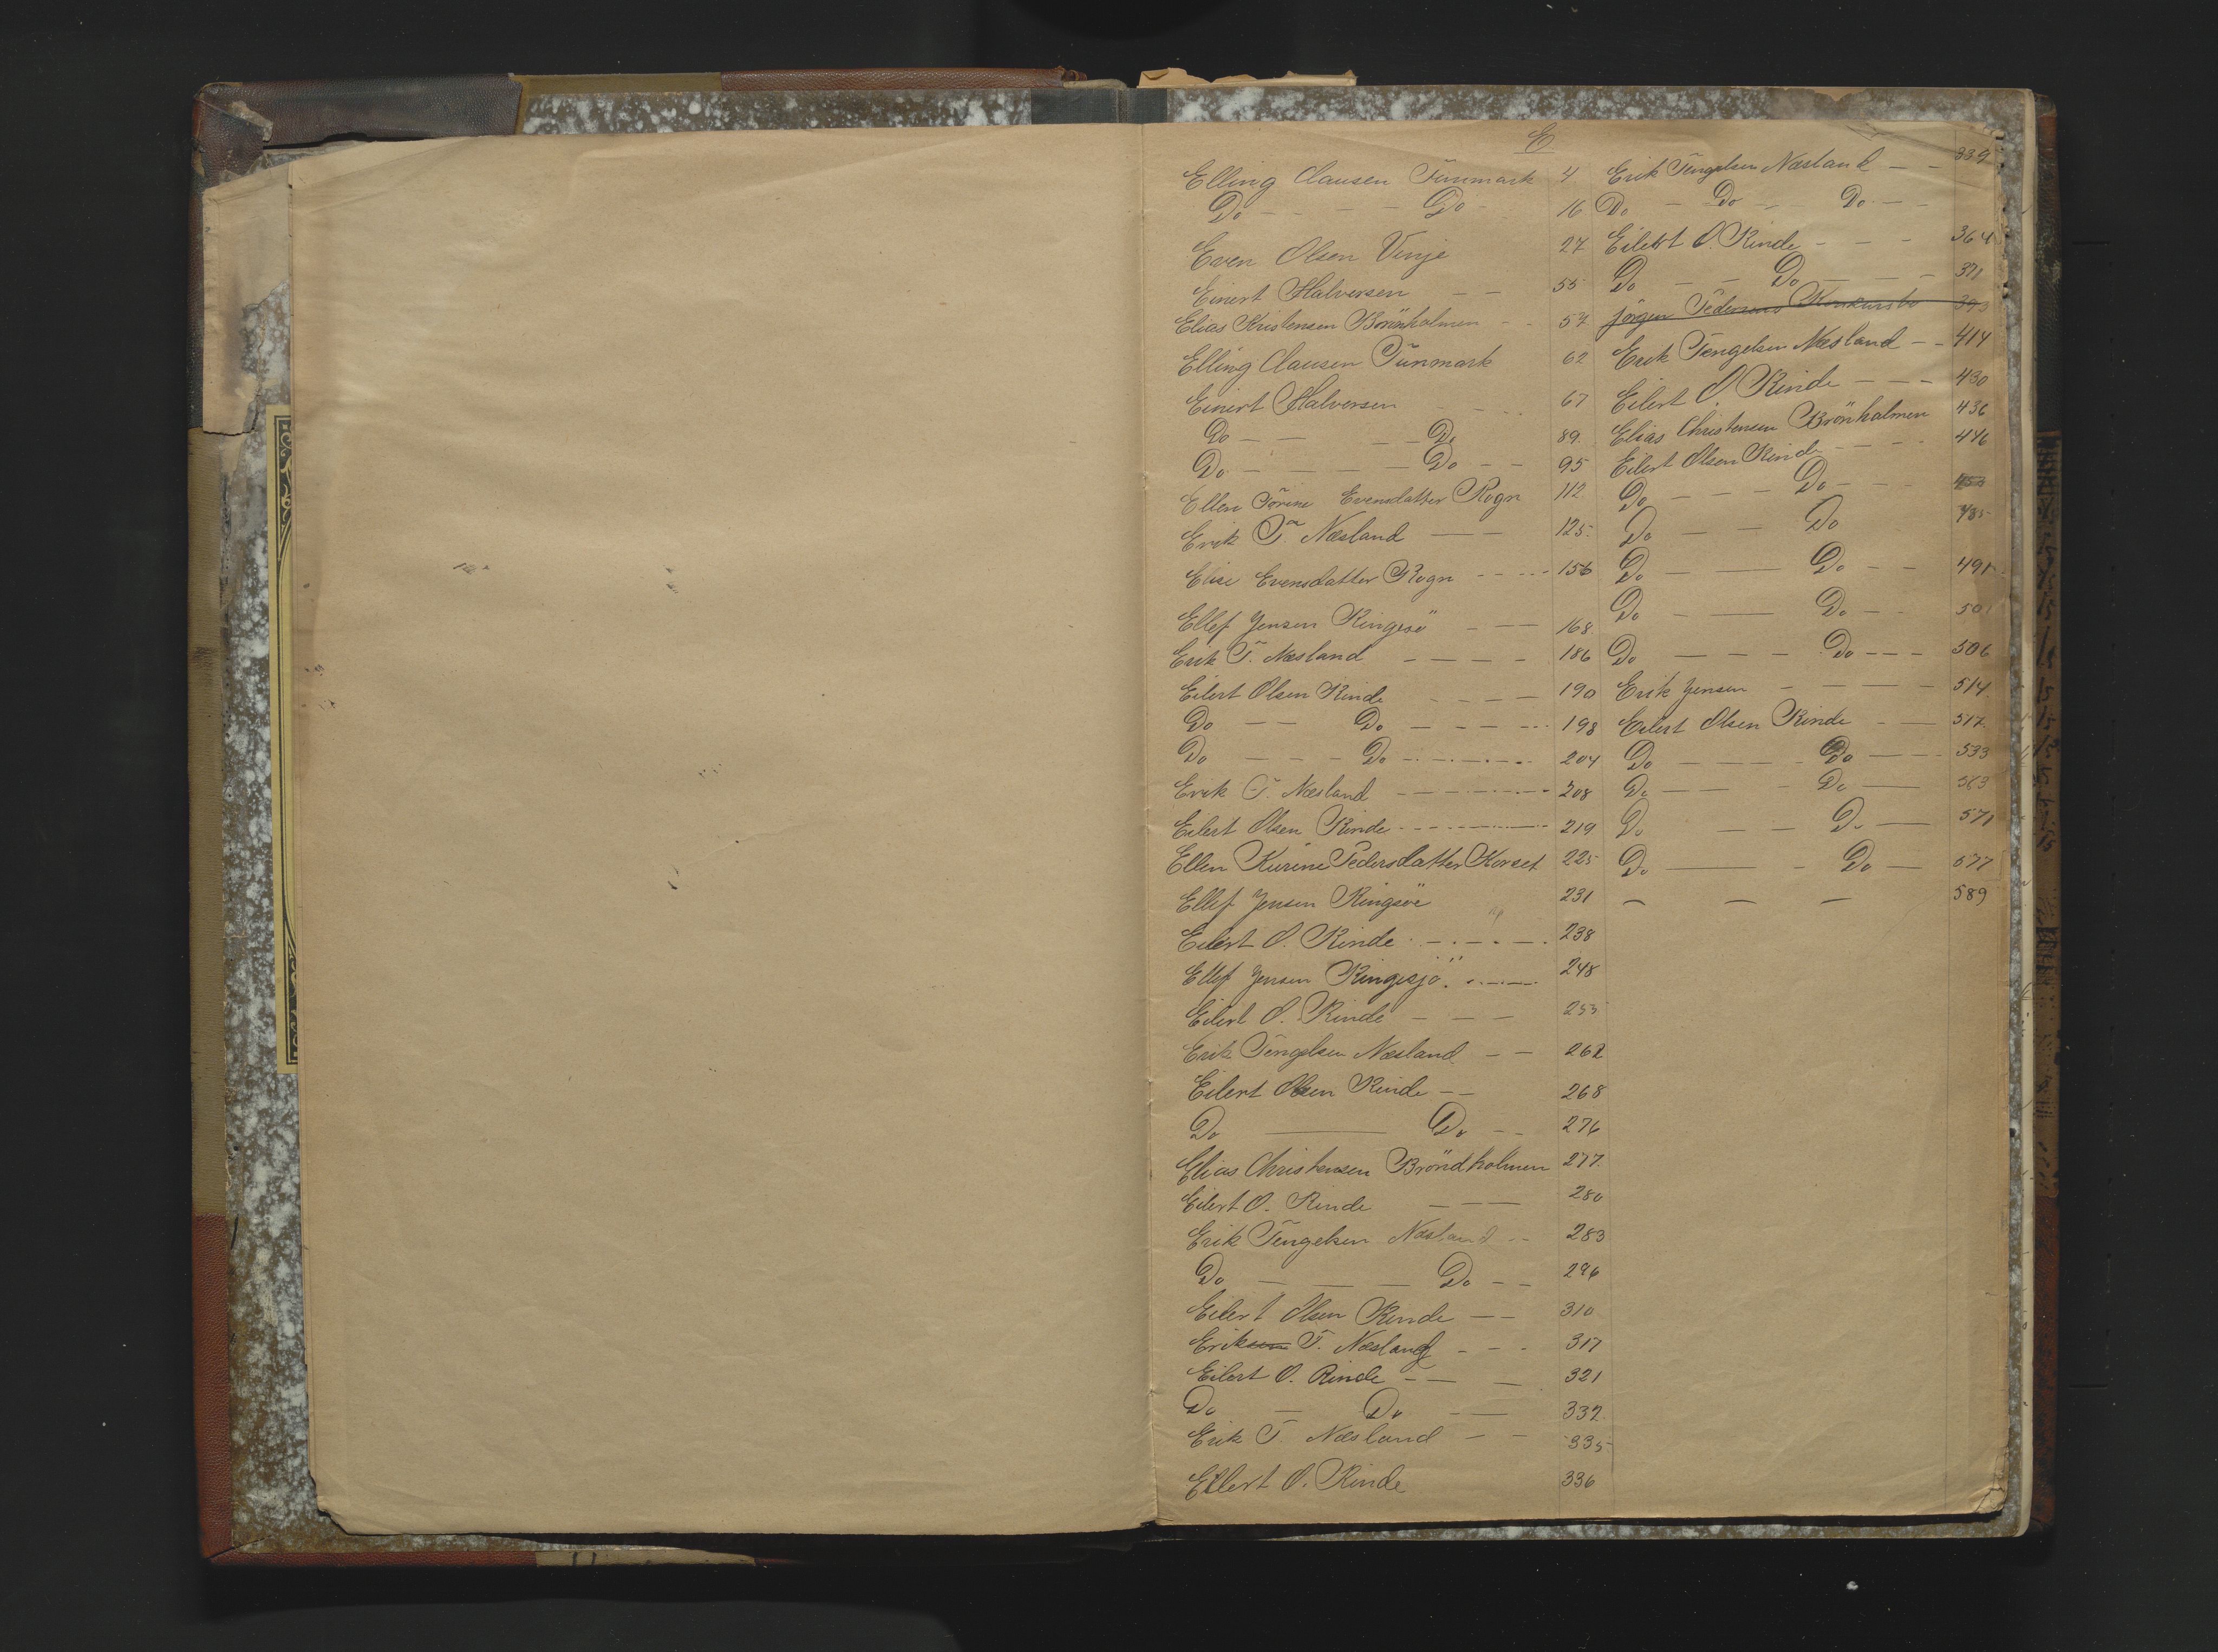 E.
Elling Clausen Tünmark 4
Do - - - Do - 16
Even Olsen Vinje 27
Einert Halversen - - 55
Elias Kristensen Brönholmen - - 57
Elling Clausen Tünmark 62
Einert Halversen - - 67
Do - - - - Do 89
Do - - - - Do - - 95
Ellen Evensdatter Rogn 112
Erik T. Næsland - - 125
Elise Evensdatter Rogn - - - - 156
Ellef Jensen Ringesö - - 168
Erik T. Næsland - - - - 186
Eilert Olsen Rinde - - - - 190
Do - - Do - - - - 198
Do - - - Do - - - - 204
Erik T. Næsland - - - - 208
Eilert Olsen Rinde - - - - 219
Ellen Kurine Pedersdatter Korset 225
Ellef Jensen Ringsöe 231
Eilert O. Rinde - - - - 238
Ellef Jensen Ringesjö - - - 248
Eilert O. Rinde - - - 255
Erik Tengelsen Næsland - - 262
Eilert Olsen Rinde - - 268
Do - Do - - 276
Elias Christensen Bröndholmen 277
Eilert O. Rinde - - - 280
Erik Tengelsen Næsland - - 283
Do - - - Do - - 296
Eilert Olsen Rinde - - 310
Erik T. Næsland - - - 317
Eilert O. Rinde - - - 321
Do - Do - - 332
Erik T. Næsland - - 335
Eilert O. Rinde 336
Erik Tengelsen Næsland - - 339
Do - Do - - Do - -
Eilert O. Rinde - - - 364
Do - - Do - - - 371
Jörgen Pedersens Konkursbo 393
Erik Tengelsen Næsland - - 414
Eilert O. Rinde - - - 430
Elias Christensen Brönholmen 436
Eilert Olsen Rinde - - - 446
Do - - - Do - - - 453
Do - - Do 485
Do - - Do - - 491
Do - - Do - - 501
Do - - - Do - - - 506
Erik Jensen - - - - 514
Eilert Olsen Rinde - - 517
Do - - - - Do - - 533
Do - - - Do - 563
Do - - Do - 571
Do - - Do - 577
- - - 589